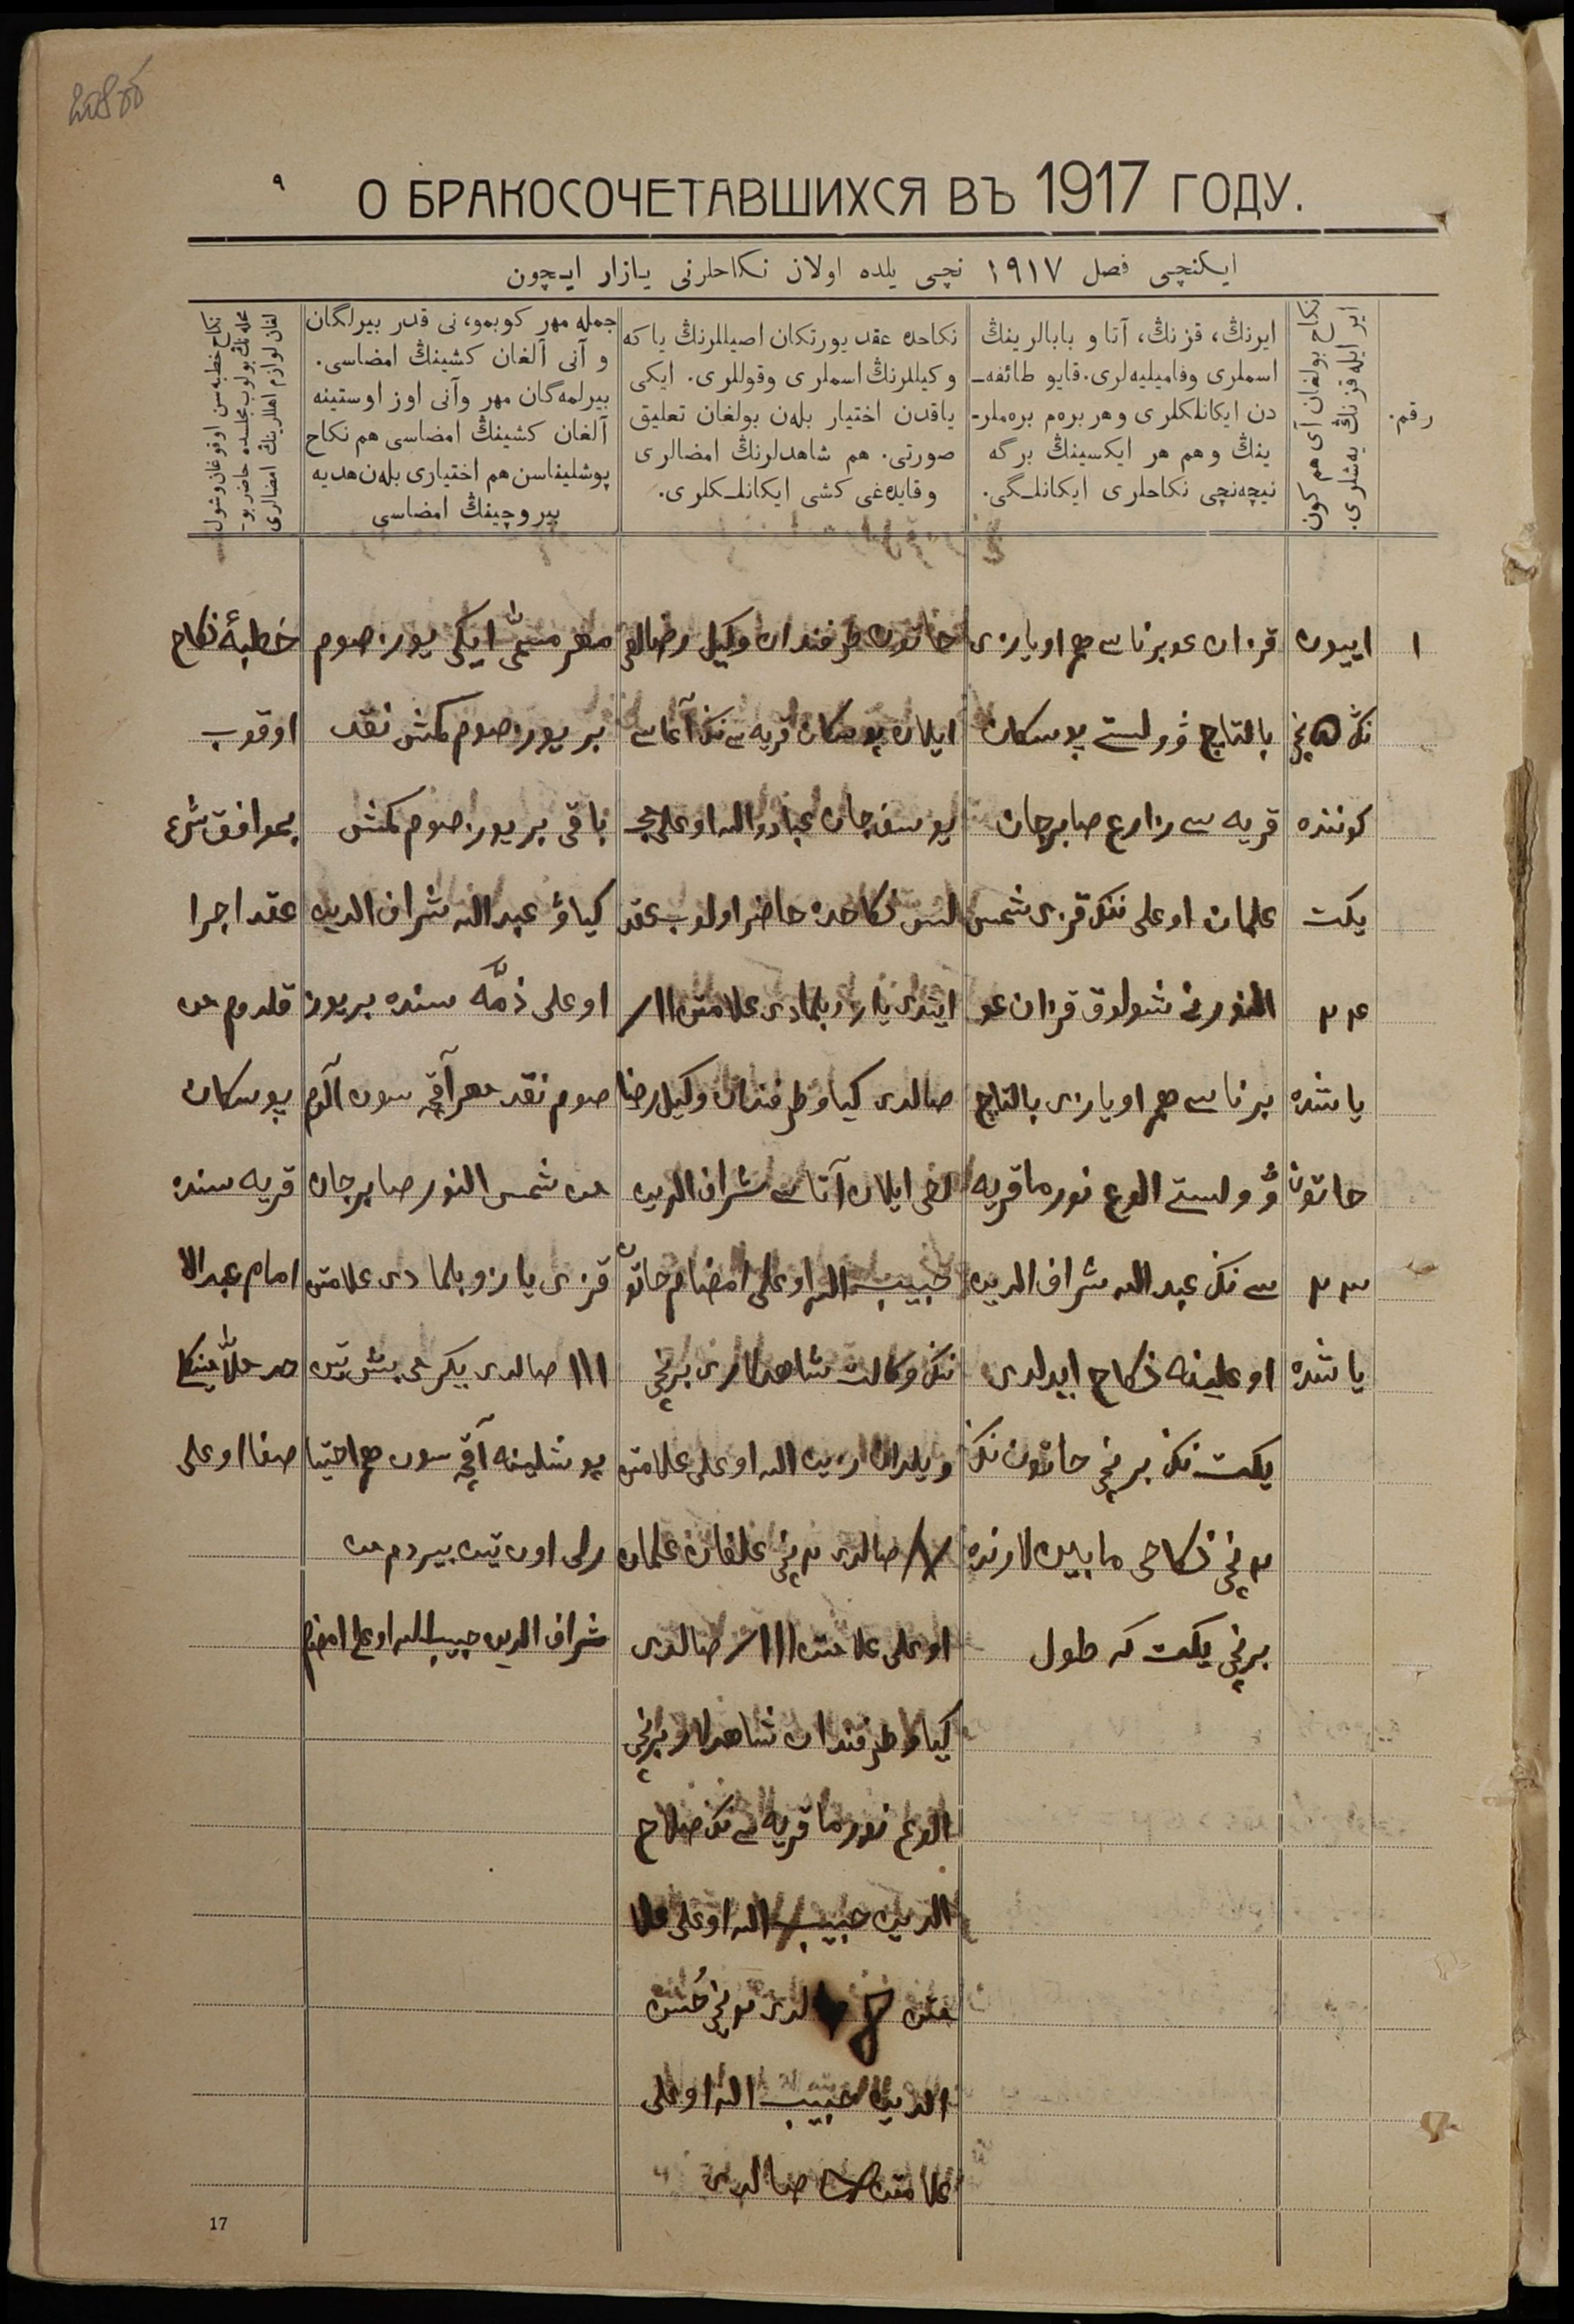 О БРАКОСОЧЕТАВШИХСЯ ВЪ 1917 ГОДУ.
٩
ایکنچی فصل ١٩١٧ نچی یلده اولان نکاحلرنی یازار ایچون
رقم.
نکاح بولغان آی هم کون
ایر ایله قزنڭ یه‌شلری.
ایرنڭ، قزنڭ، آتا و بابالرینڭ
اسملری وفامیلیه‌لری. قایو طائفه‌ـ
دن ایکانلکلری و هر بره‌م بره‌ملرـ
ینڭ و هم هر ایکسینڭ برگه
نیچه‌نچی نکاحلری ایکانلـگی.
نکاحده عقد یورتکان اصیللرنڭ یا که
وکیللرنڭ اسملری وقوللری. ایکی
یاقدن اختیار بلەن بولغان تعلیق
صورتی. هم شاهدلرنڭ امضالری
وقایده‌غی کشی ایکانلـکلری.
جمله مهر کوبمو، نی قدر بیرلگان
و آنی آلغان کشینڭ امضاسی.
بیرلمه‌گان مهر وآنی اوز اوستینه
آلغان کشینڭ امضاسی هم نکاح
پوشلیناسن هم اختیاری بلەن هدیه
بیروچینڭ امضاسی
نکاح خطبه‌سن اوقوغان وشول
محله‌نڭ بولوب مجلسده حاضر بوـ
لغان لوازم اهللرینڭ امضالری
١
اییون
نڭ ۵ نچی
کوننده
یکت
٢٤
یاشنده
خاتون
٢٣
یاشنده
قزان غوبرناسی هم اویازی
بالتاچ ۇولستی پوسکان
قریه سی زارع صابرجان
علمان اوغلی ننڭ قزی شمس
النورنی شولوق قزان غو
برناسی هم اویازی بالتاچ
ۇولستی الوغ نورما قریه
سی نڭ عبدالله شراف الدین
اوغلینه نکاح ایدلدی
یکت نڭ برنچی خاتون نڭ
٢ نچی نکاحی مابینلارنده
برنچی یکت که طول
خاتون طرفندان وکیل رضالغی
ایلان پوسکان قریه سی نڭ آغاسی
یوسفجان عبادالله اوغلی مجـ
لس نکاحده حاضر اولوب عقد
ایتدی یازو بلمادی علامتن ااا/
صالدی کیاو طرفندان وکیل رضا
لغی ایلان آتاسی شراف الدین
حبیب الله اوغلی امضام خاتون
نڭ وکالت شاهدلاری برنچی
ویلدان زین الله اوغلی علامتن
X/ صالدی ٢ نچی علفان علمان
اوغلی علامتن ااا/ صالدی
کیاو طرفندان شاهدلار برنچی
الوغ نورما قریه سی نڭ صلاح
الدین حبیب الله اوغلی علا
متن صالدی ٢ نچی حسن
الدین حبیب الله اوغلی
علامتن صالدی
مهر مسمّی ایکی یوز صوم
بر یوز صوم کمش نقد
باقی بر یوز صوم کمش
کیاۇ عبدالله شراف الدین
اوغلی ذمّه سنده بر یوز
صوم نقد مهر آقچه سون آلدم
من شمس النور صابرجان
قزی یازو بلمادی علامتن
ااا صالدی یکرمی بش تین
پوشلینه آقچه سون هم اختیا
رلی اون تین بیردم من
شراف الدین حبیب الله اوغلی امضام
خطبهٔ نکاح
اوقوب
بموافق شرع
عقد اجرا
قلدوم من
پوسکان
قریه سنده
امام عبدالا
حد ملّا
صفا اوغلی
17